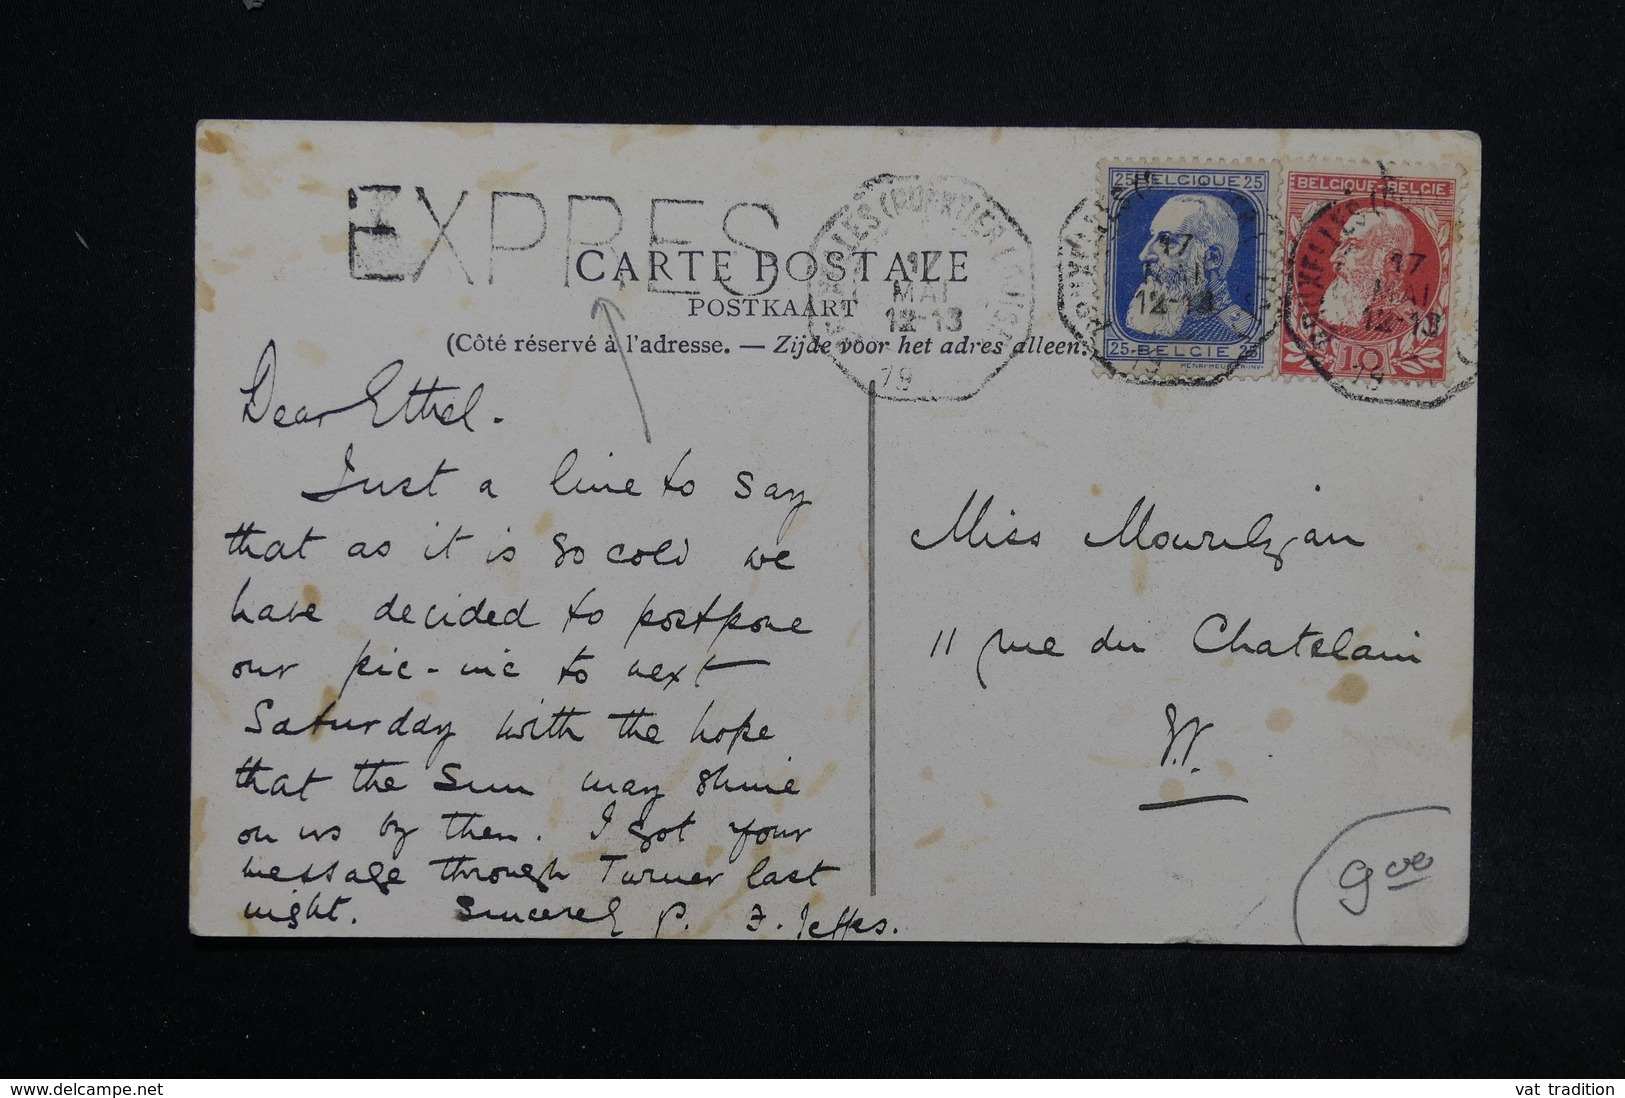 EXPRES
BRUXELLES (QUARTIER LOUISE)
17
MAI
12-13
79
25 BELGIQUE 25
17
MAI
12-13
25 BELGIE 25
79
BELGIQUE-BELGIE
BRUXELLES
17
MAI
12-13
10
79
CARTE POSTALE
POSTKAART
(Côté réservé à l'adresse. — Zijde voor het adres alleen.
Dear Ethel.
Just a line to say
that as it is so cold we
have decided to postpone
our pic-nic to next
Saturday with the hope
that the sun may shine
on us by then. I got your
message through Turner last
night. Sincerely P. F. Jeffes.
Miss
11 rue du Chatelain
9
delcampe.net
vat_tradition